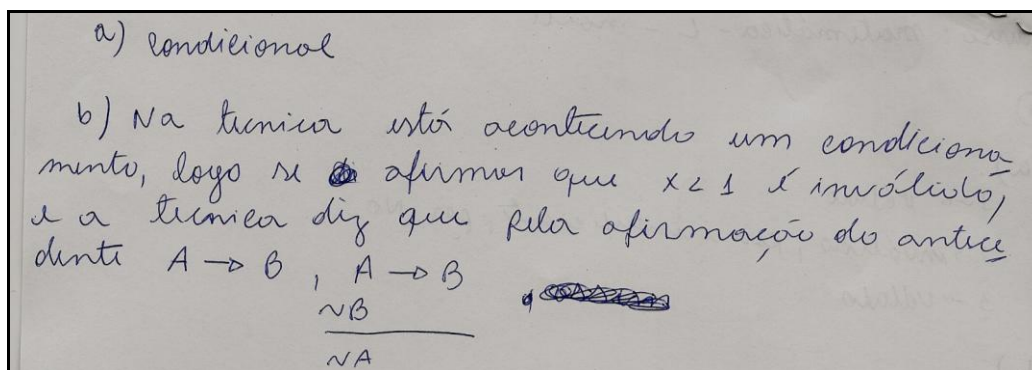 a) condicional
b) Na tecnica está acontecendo um condiciona
mento, logo se afirmar que x < 1 é inválido,
e a tecnica diz que pela afirmação do antece
dente A → B , A → B
~B
~A